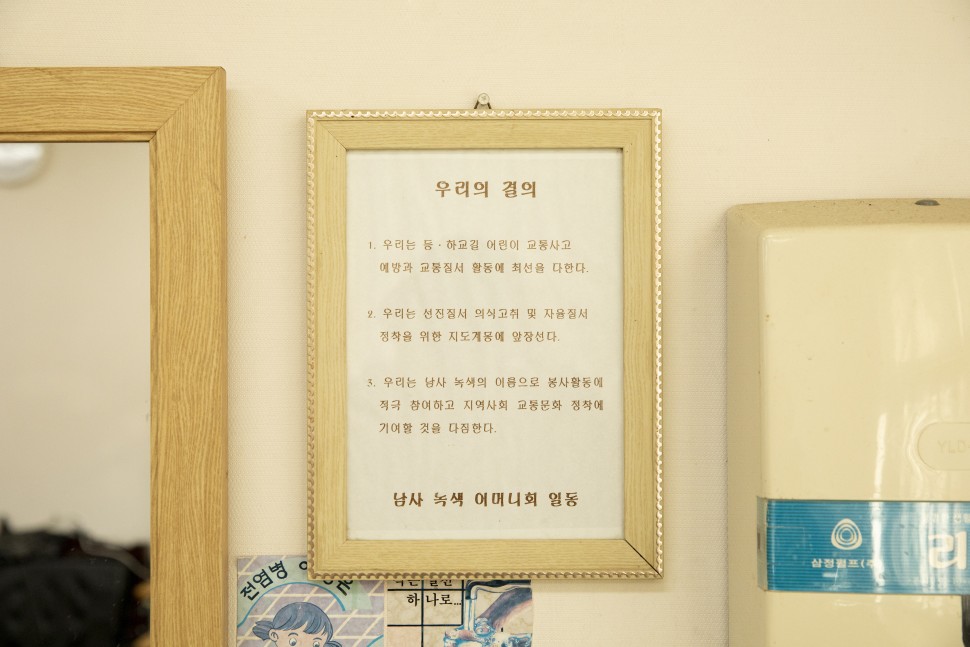 우리의 결의
1. 우리는 등·하교길 어린이 교통사고
예방과 교통질서 활동에 최선을 다한다.
2. 우리는 선진질서 의식고취 및 자율질서
정착을 위한 지도계몽에 앞장선다.
3. 우리는 남사 녹색의 이름으로 봉사활동에
적극 참여하고 지역사회 교통문화 정착에
기여할 것을 다짐한다.
남사 녹색 어머니회 일동
전염병
하나로...
삼정펄프(주)
리